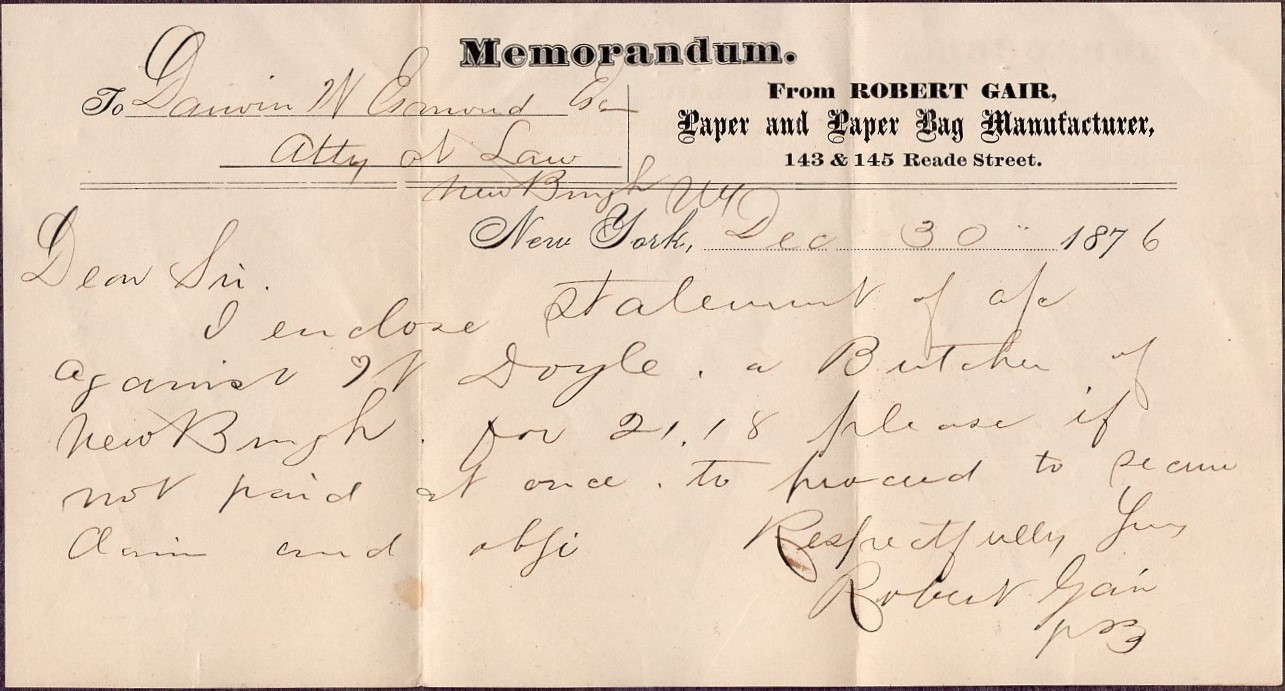 Memorandum.
To Darwin W Esmond Esq
Atty at Law
New Burgh NY
From ROBERT GAIR,
Paper and Paper Bag Manufacturer,
143 & 145 Reade Street.
New York, Dec 30" 1876
Dear Sir.
I enclose statement of a/c
against W Doyle. a Butcher of
New Burgh. for 21.18 please if
not paid at once. to proceed to secure
Claim and
Respectfully Yours
Robert Gair